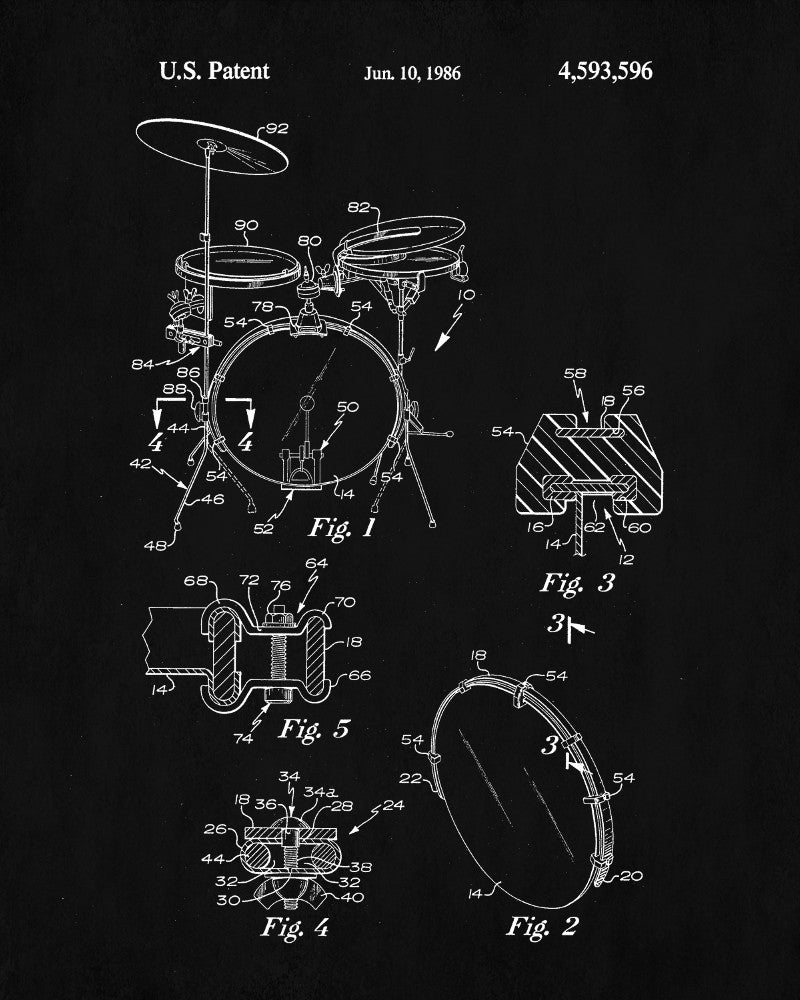 U.S. Patent Jun. 10, 1986 4,593,596
92
82
90
80
10
78
54 54
84
58
86
18 56
88
50
54
4 4
44
42
54 54
46
14
16 62 60
52
48
14 12
Fig. 1
Fig. 3
64
68 72 76
70
3
18
14
66
18
54
74
Fig. 5
54
3
22
34
54
36 34a
18 28 24
26
44
38
32 32
20
30 40
14
Fig. 4
Fig. 2